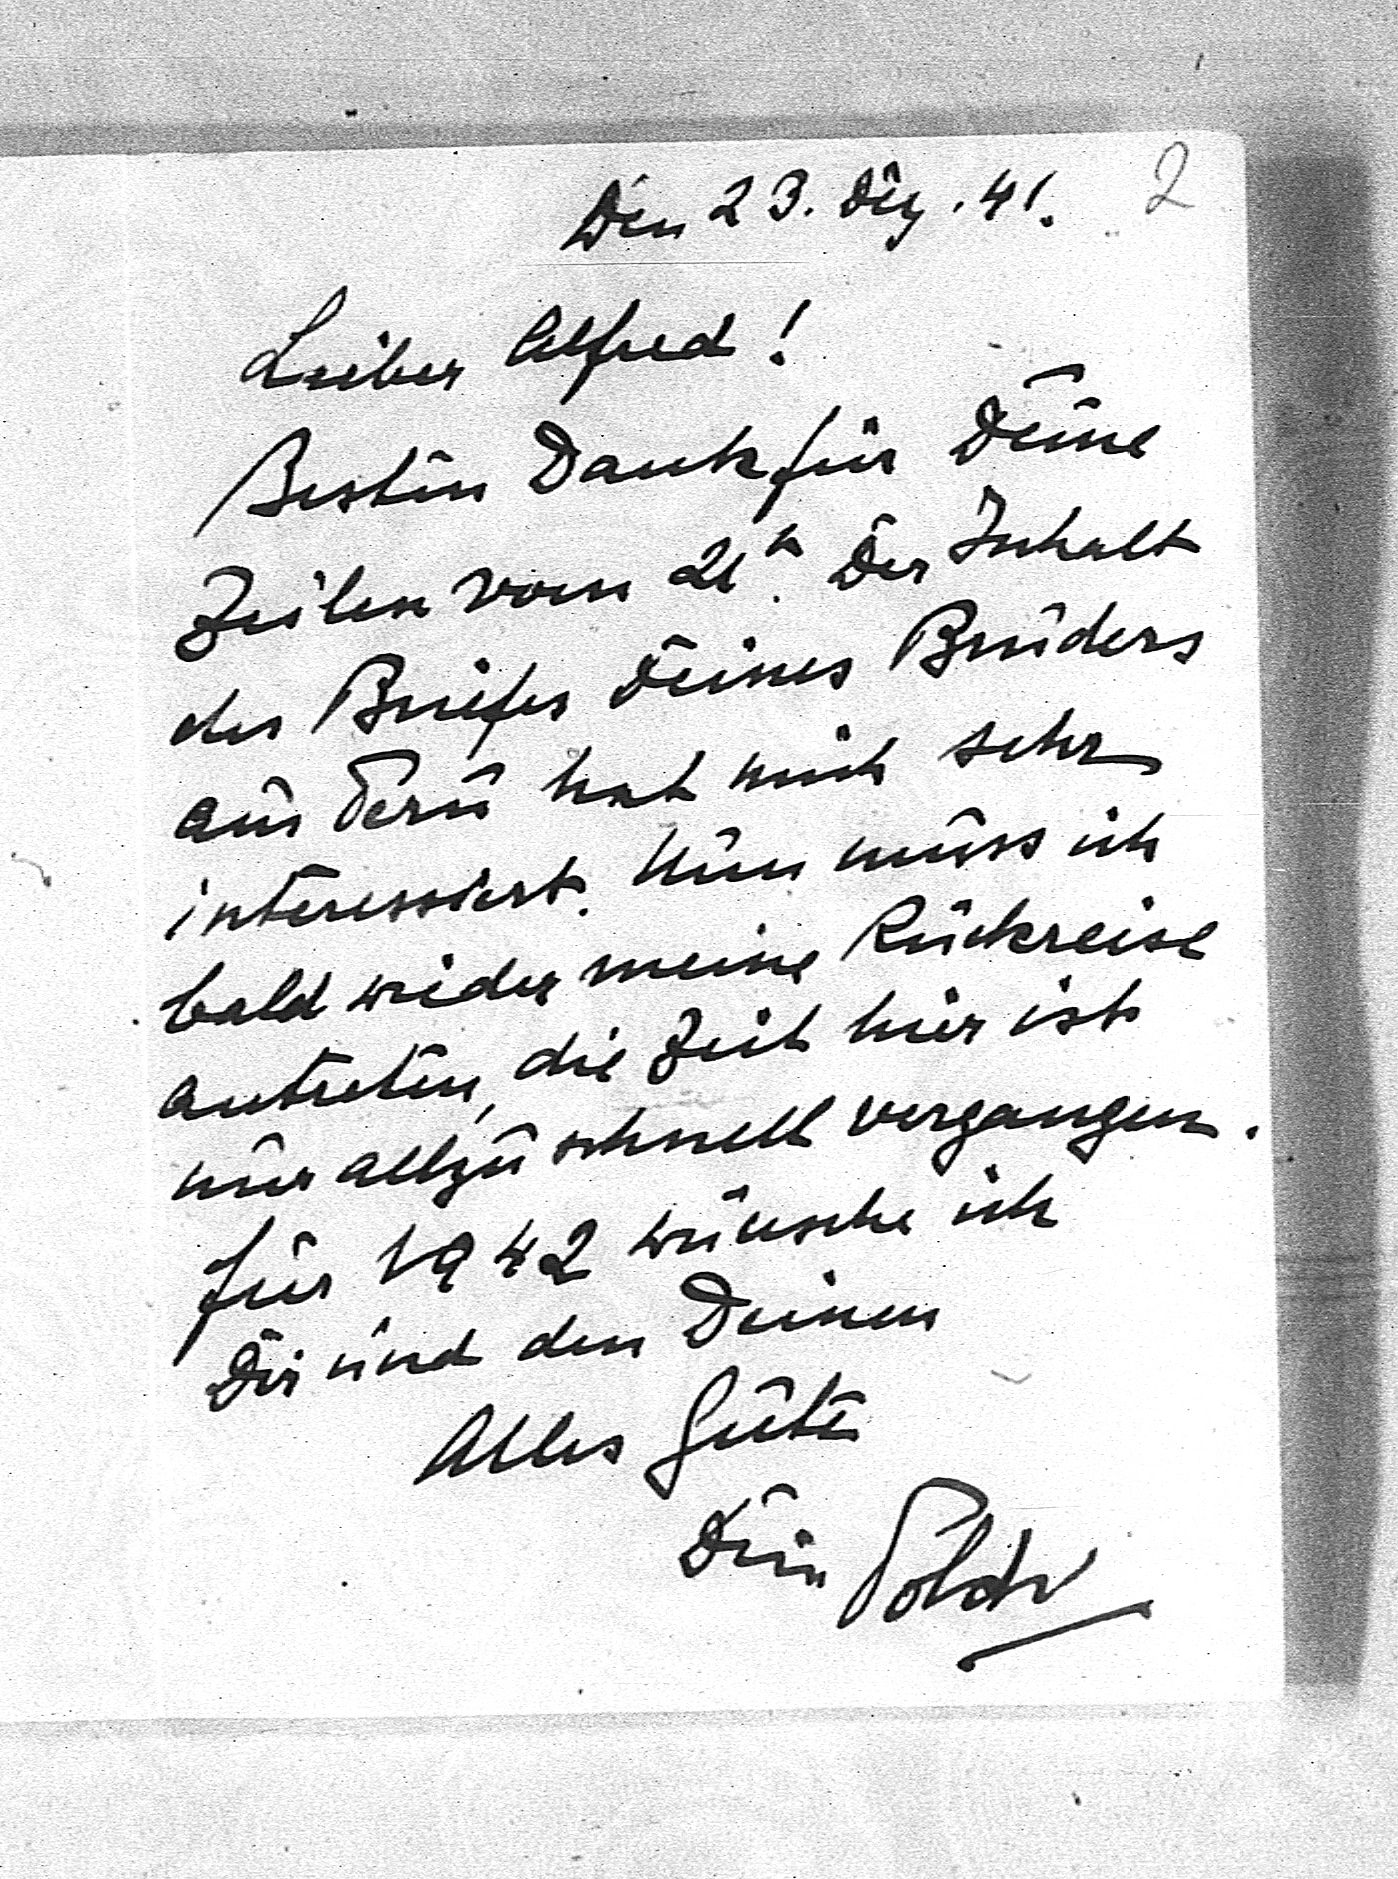 2
Den 23. Dez. 41.
Lieber Alfred!
Besten Dank für Deine
Zeilen vom 21n. Der Inhalt
des Briefes Deines Bruders
aus Perú hat mich sehr
interessiert. Nun muss ich
bald wieder meine Rückreise
antreten, die Zeit hier ist
nur allzu schnell vergangen.
Für 1942 wünsche ich
Dir und den Deinen
Alles Gute
Dein Poldi